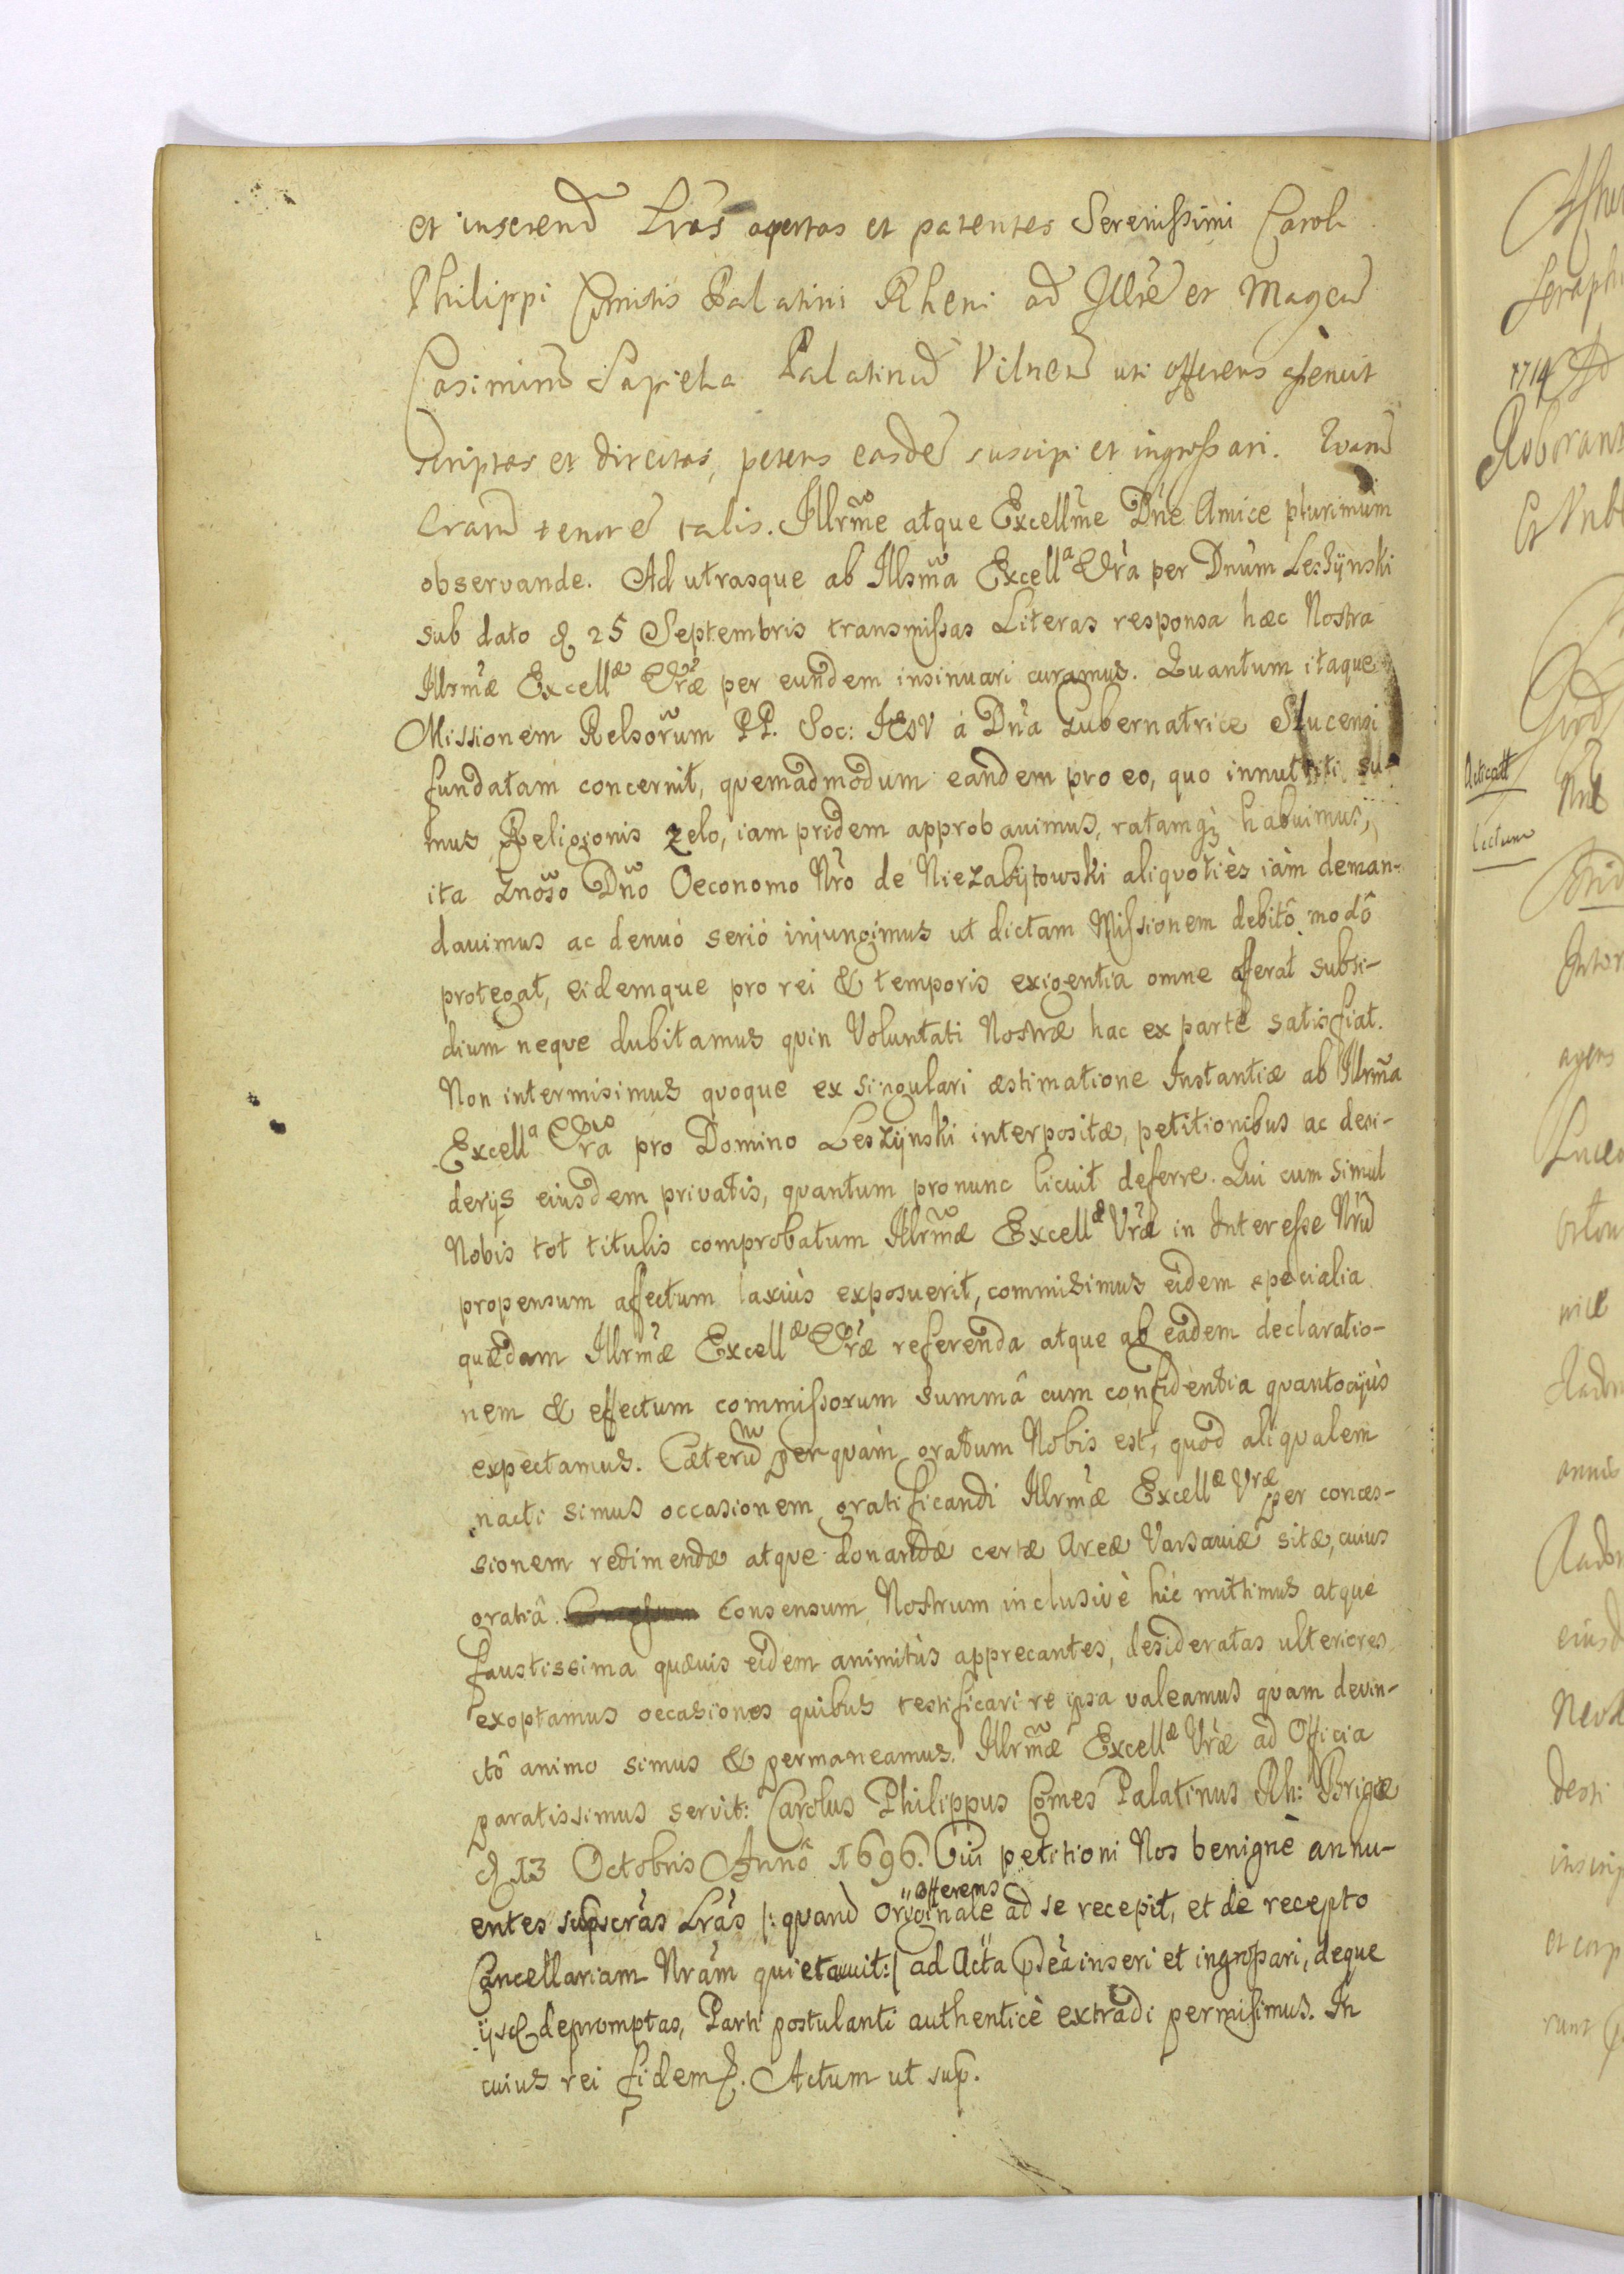 et inserend Lras apertas et patentes Serenissimi Caroli
Philippi Comitis Palatini Rheni ad Illre et Magcu
Casimirũ Sapieha Palatinũ Vilnen uti offerens asseruit
scriptas et directas, petens easdẽ suscipi et ingrossari. Quarũ
Lrarũ tenore talis. Illrme atque Excellme Dne Amice plurimum
observande. Ad utrasque ab Illsma Excellᵃ Vrà per Dnum Leszÿnski
sub dato d 25 Septembris transmissas Literas responsa hæc Nostra
Illsmæ Excellᵃᵉ Vræ per eundem insinuari curamus. Quantum itaque
Missionem Relsorum PP. Soc: IESV á Dna Gubernatrice Slucensi
fundatam concernit, quemadmodum eandem pro eo, quo innutriti su-
mus Religionis zelo, iam pridem approbauimus, ratamq3 habuimus,
ita Gnoso Dno Oeconomo Nro de Niezabÿtowski aliquotiès iàm deman-
dauimus ac denuó serió injungimus ut dictam Missionem debitô modô
protegat, eidemque pro rei & temporis exigentia omne afferat subsi-
dium neque dubitamus quin Voluntati Nostræ hac ex parte satisfiat.
Non intermisimus quoque ex singulari æstimatione Instantiæ ab Illrma
Excellᵃ Vra pro Domino Leszÿnski interpositæ, petitionibus ac desi-
derijs eiusdem privatis, quantum pro nunc licuit deferre. Qui cum simul
Nobis tot titulis comprobatum Illrmæ Excellᵃᵉ Vræ in Interesse Nrũ
propensum affectum laxiùs exposuerit, commisimus eidem specialia
quædam Illrmæ Excellᵃᵉ Vræ referenda atque ab eadem declaratio-
nem & effectum commissorum summâ cum confidentia quantocijùs
expectamus. Cæterũ perquàm gratum Nobis est, quod aliqualem
nacti simus occasionem gratificandi Illrmæ Excellᵃᵉ Vræ per conces-
sionem redimendæ atque donandæ certæ Areæ Varsaviæ sitæ, cuius
gratiâ. Consensum Nostrum inclusivè hic mittimus atque
faustissima quævis eidem animitùs apprecantes, desideratas ulteriores
exoptamus occasiones quibus testificari re ipsa valeamus quam devin-
ctô animo simus & permaneamus. Illrmæ Excellᵃᵉ Vræ ad Officia
paratissimus servit: Carolus Philippus Comes Palatinus Rh: Brigæ
d 13 Octobris Anno 1696. Cui petitioni Nos benignè annu-
offerens
entes supscras Lras |: quarũ Originale ad se recepit, et de recepto
Cancellariam Nram quietauit:| ad Acta pdca inseri et ingrossari, deque
ijsd depromptas, Parti postulanti authenticè extradi permisimus. In
cuius rei fidem. Actum ut sup.
1714
Roborant
Acticatt
lectum
agens
annis
eiusd
et corp